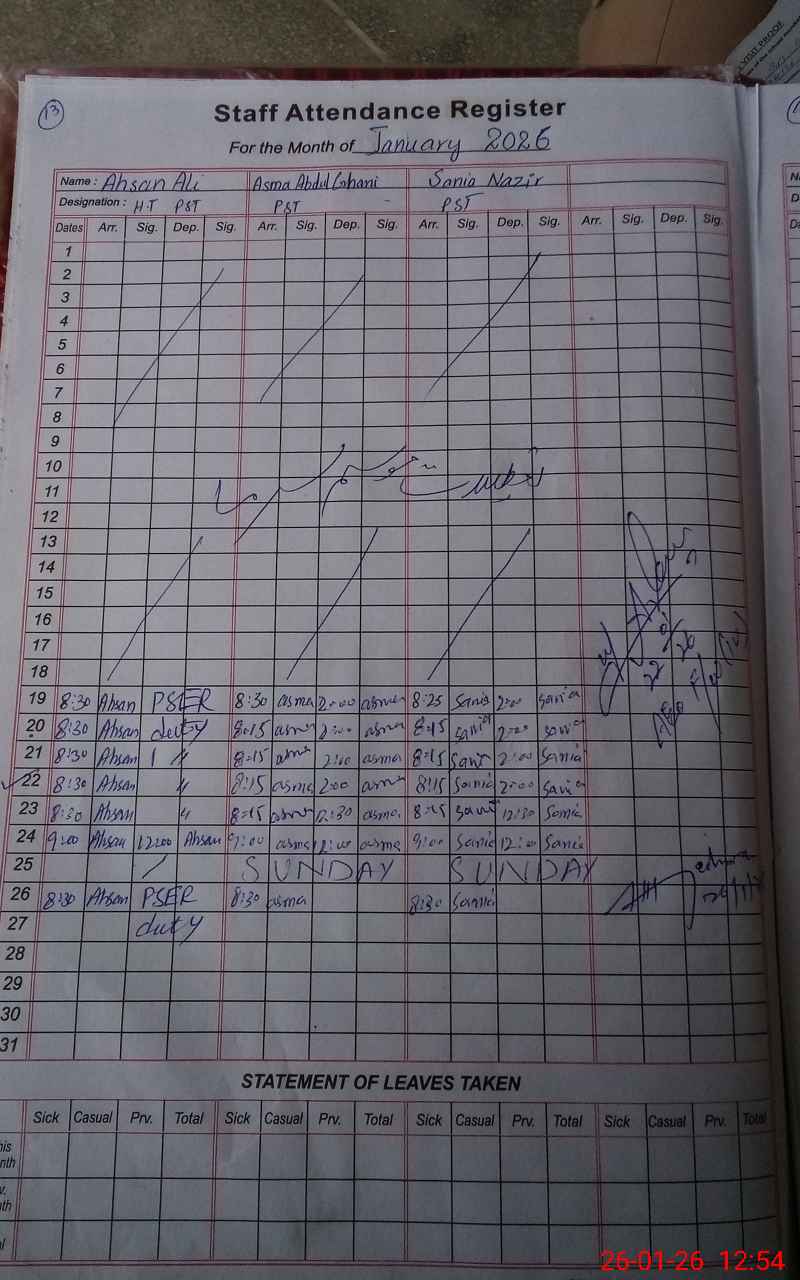 13
Staff Attendance Register
For the Month of January 2026
Name : Ahsan Ali Asma Abdul Ghani Sania Nazir
Designation : H.T PST PST PST
Dates Arr. Sig. Dep. Sig. Arr. Sig. Dep. Sig. Arr. Sig. Dep. Sig. Arr. Sig. Dep. Sig.
1
2
3
4
5
6
7
8
9
10
11
12
13
14
15
16
17
18
19 8:30 Ahsan PSER 8:30 asma 2:00 asma 8:25 Sania 2:00 Sania
20 8:30 Ahsan duty 8:15 asma 2:00 asma 8:15 Sania 2:00 Sania
21 8:30 Ahsan 〃 8:15 asma 2:00 asma 8:15 Sania 2:00 Sania
22 8:30 Ahsan 〃 8:15 asma 2:00 asma 8:15 Sania 2:00 Sania
23 8:30 Ahsan 〃 8:15 asma 12:30 asma 8:15 Sania 12:30 Sania
24 9:00 Ahsan 12:00 Ahsan 9:00 asma 12:00 asma 9:00 Sania 12:00 Sania
25 SUNDAY SUNDAY
26 8:30 Ahsan PSER 8:30 asma 8:30 Sania
27 duty
28
29
30
31
STATEMENT OF LEAVES TAKEN
Sick Casual Prv. Total Sick Casual Prv. Total Sick Casual Prv. Total Sick Casual Prv. Total
26-01-26 12:54